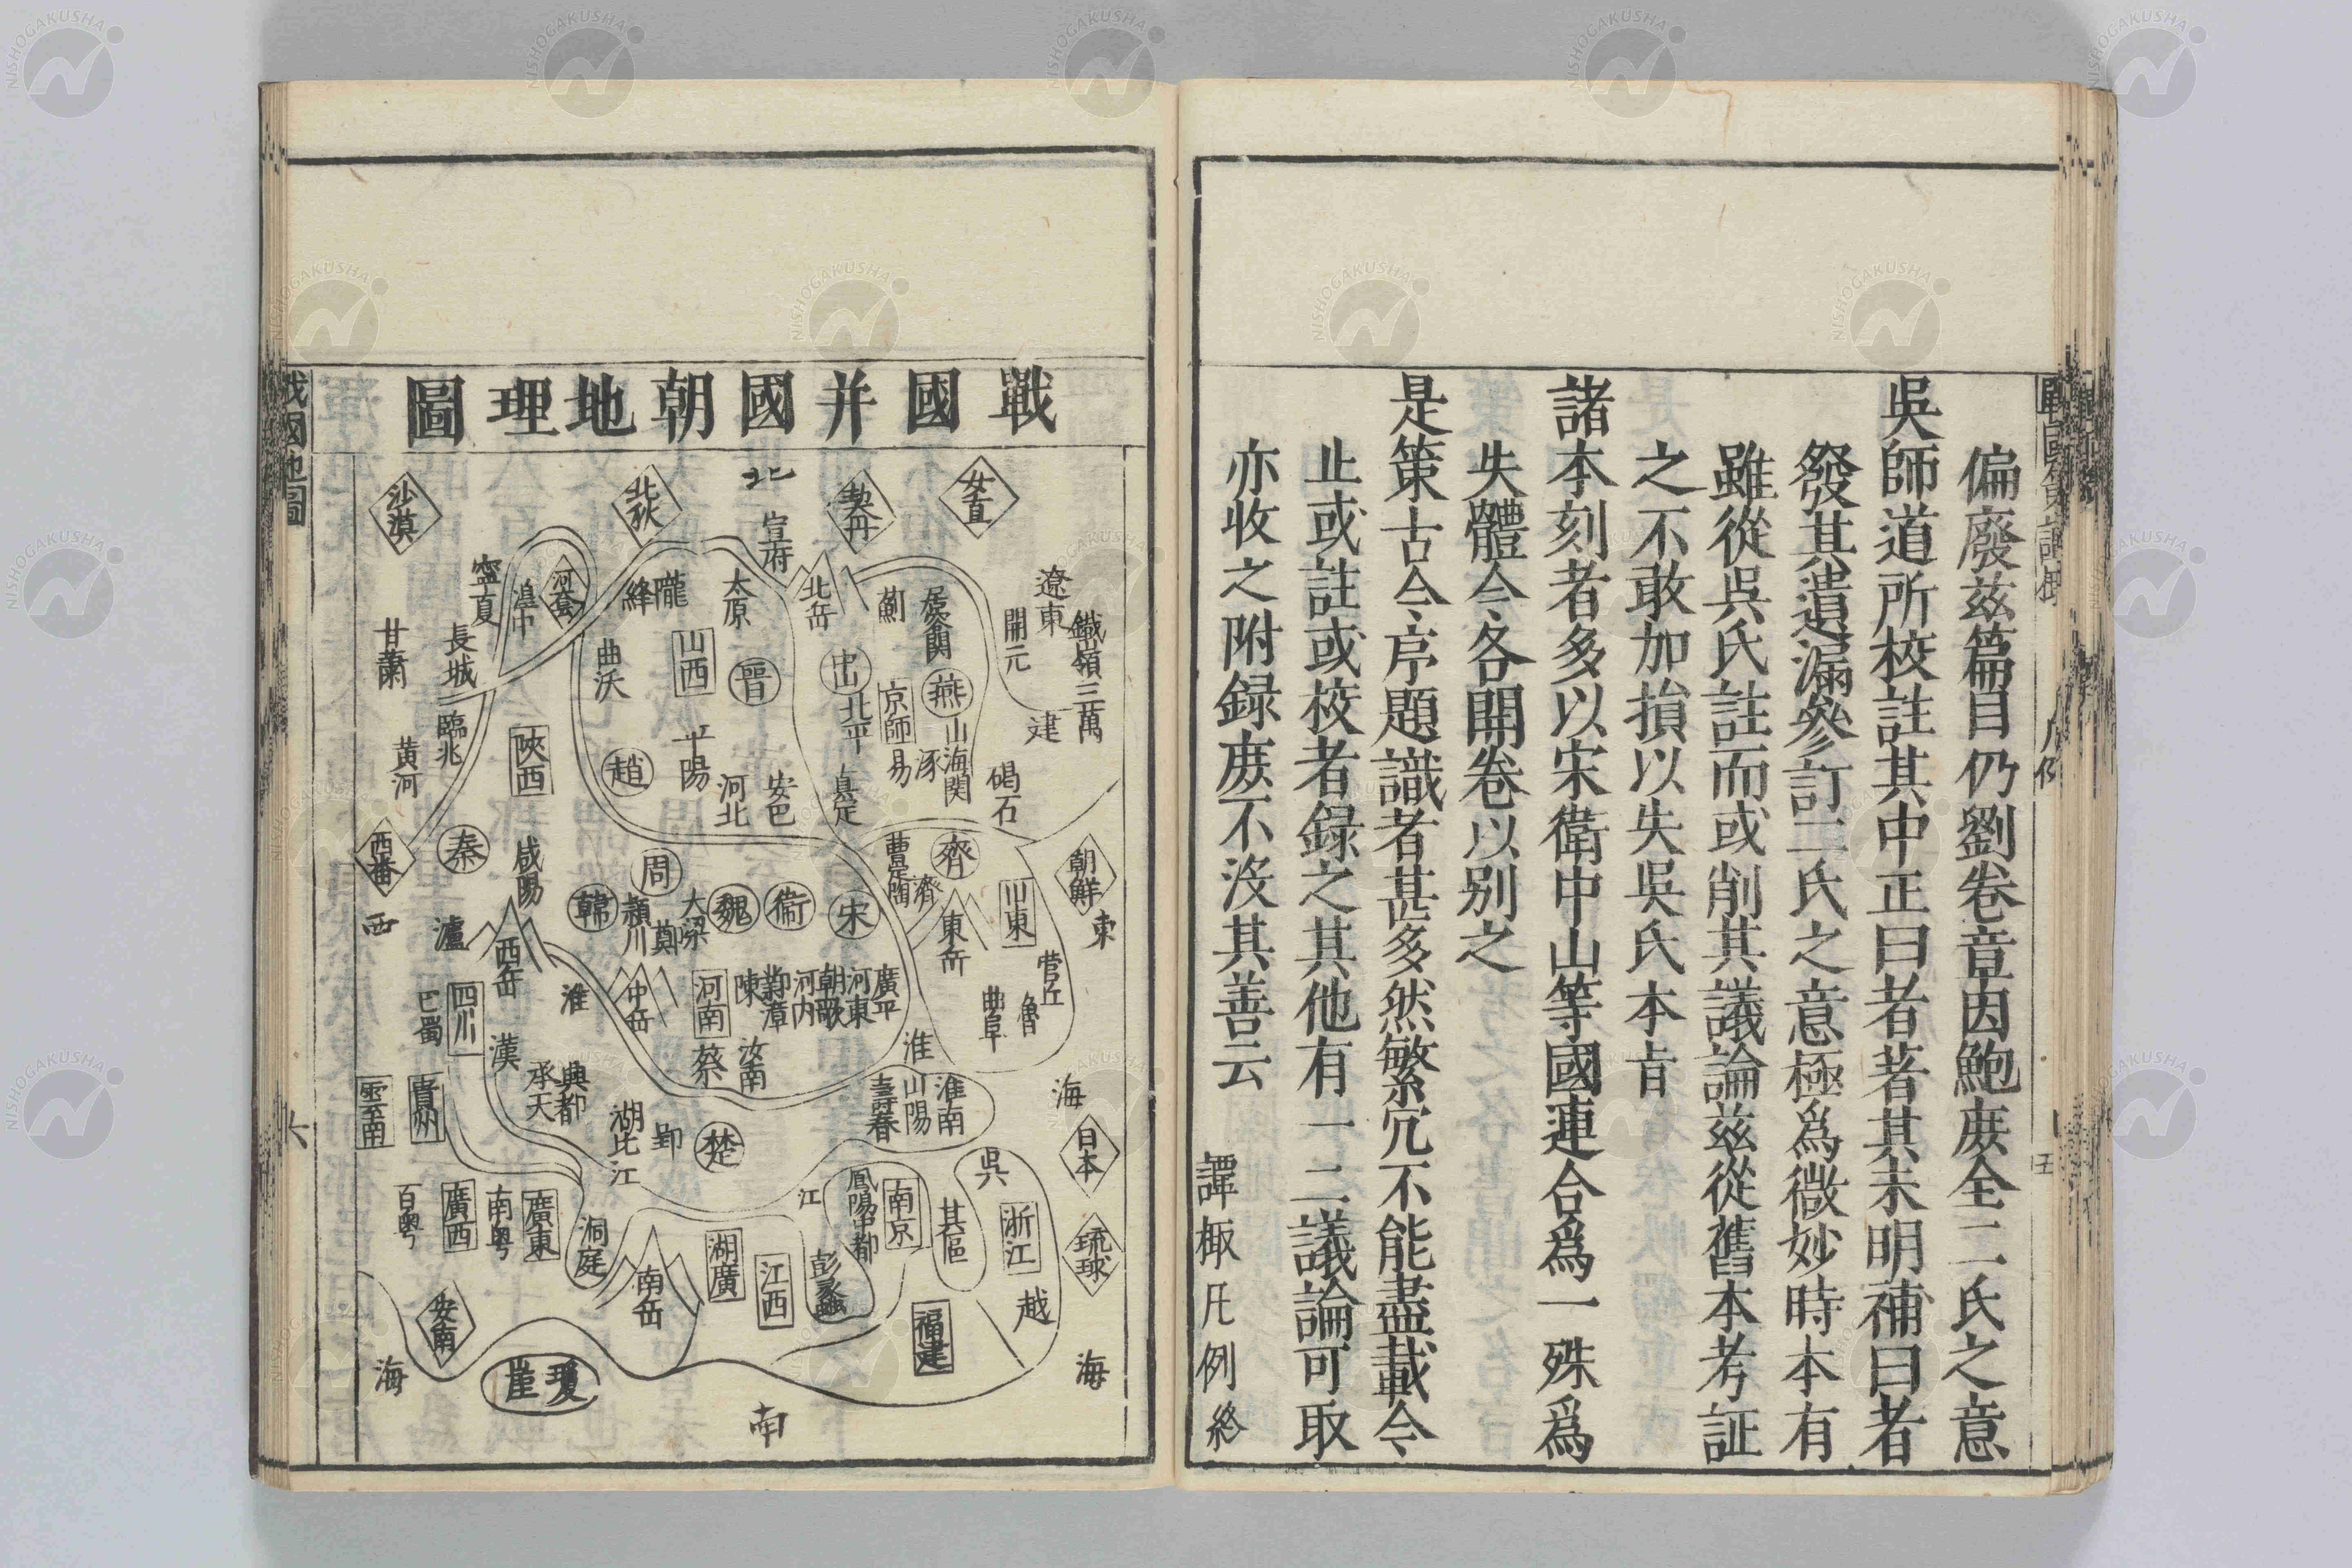 偏廢茲篇目仍劉卷章因鮑庻全二氏之意
吳師道所校註其中正曰者著其未明補曰者
發其遺漏參訂二氏之意極爲微妙時本有
雖從吳氏註而或削其議論茲從舊本考証
之不敢加損以失吳氏本㫖
諸本刻者多以宋衛中山等國連合爲一殊爲
失體今各開卷以別之
是策古今序題識者甚多然繁冗不能盡載今
止或註或校者録之其他有一二議論可取
亦收之附録庻不没其善云
譚棷凡例終
戰國并國朝地理圖
北
女直
契丹
北狄
沙漠
宣府
遼東
鐵嶺
三萬
開元
建
居庸関
薊
北岳
太原
隴
絳
河套
湟中
寧夏
長城
甘肅
燕
山海関
京師
涿
易
北平
碣石
真定
晉
山西
曲沃
平陽
安邑
河北
趙
陝西
臨兆
黄河
西番
西
秦
咸陽
周
韓
潁川
鄭
大梁
魏
衞
宋
齊
濟
曹
陶
山東
東岳
朝鮮
東
营丘
魯
曲阜
廣平
河東
朝歌
河内
漳
陳
河南
中岳
淮
西岳
瀘
四川
巴蜀
漢
蔡
汝南
淮
淮南
山陽
壽春
海
日本
琉球
興都
承天
湖北
江
郢
楚
貴州
雲南
吳
浙江
越
南京
鳳陽中都
江
彭蠡
江西
湖廣
南岳
洞庭
廣東
南粤
廣西
百粤
安南
福建
海
海
瓊崖
南
戰國地圖
六